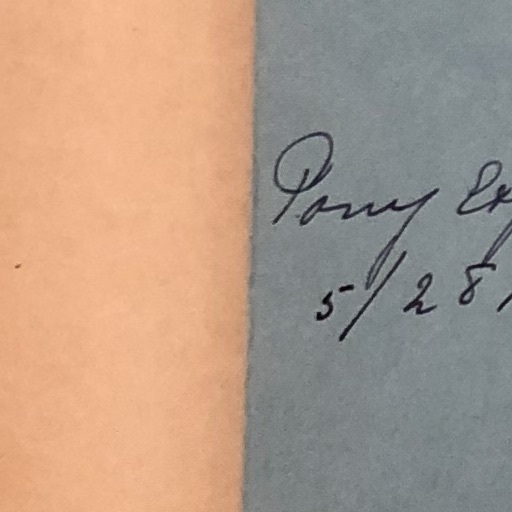 Pony Ex
5/28/